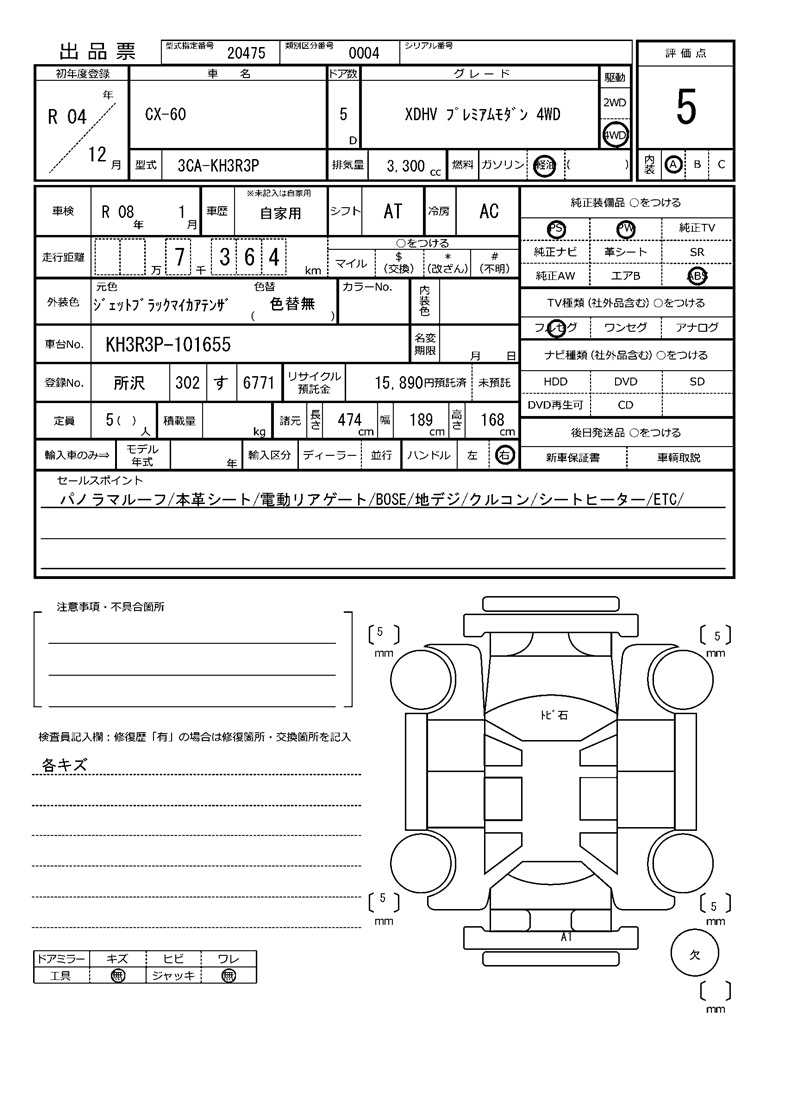 出品票 型式指定番号 20475 類別区分番号 0004 シリアル番号
評価点
5
初年度登録 車名 ドア数 グレード 駆動
R 04 年 12 月 CX-60 5 D XDHV ﾌﾟﾚﾐｱﾑﾓﾀﾞﾝ 4WD 2WD 4WD
型式 3CA-KH3R3P 排気量 3,300 cc 燃料 ガソリン 軽油 ( ) 内装 A B C
車検 R 08 年 1 月 車歴 ※未記入は自家用 自家用 シフト AT 冷房 AC
走行距離 万 7 千 3 6 4 km ○をつける
マイル $ (交換) * (改ざん) # (不明)
外装色 元色 ｼﾞｪｯﾄﾌﾞﾗｯｸﾏｲｶｱﾃﾝｻﾞ 色替 ( 色替無 ) カラーNo. 内装色
車台No. KH3R3P-101655 名変期限 月 日
登録No. 所沢 302 す 6771 リサイクル預託金 15,890円預託済 未預託
定員 5 ( ) 人 積載量 kg 諸元 長さ 474 cm 幅 189 cm 高さ 168 cm
輸入車のみ⇒ モデル年式 年 輸入区分 ディーラー 並行 ハンドル 左 右
純正装備品 ○をつける
PS PW 純正TV
純正ナビ 革シート SR
純正AW エアB ABS
TV種類 (社外品含む) ○をつける
フルセグ ワンセグ アナログ
ナビ種類 (社外品含む) ○をつける
HDD DVD SD
DVD再生可 CD
後日発送品 ○をつける
新車保証書 車輌取説
セールスポイント
パノラマルーフ/本革シート/電動リアゲート/BOSE/地デジ/クルコン/シートヒーター/ETC/
注意事項・不具合箇所
検査員記入欄：修復歴「有」の場合は修復箇所・交換箇所を記入
各キズ
ドアミラー キズ ヒビ ワレ
工具 無 ジャッキ 無
5 mm
5 mm
ﾄﾋﾞ石
5 mm
5 mm
A1
欠
mm